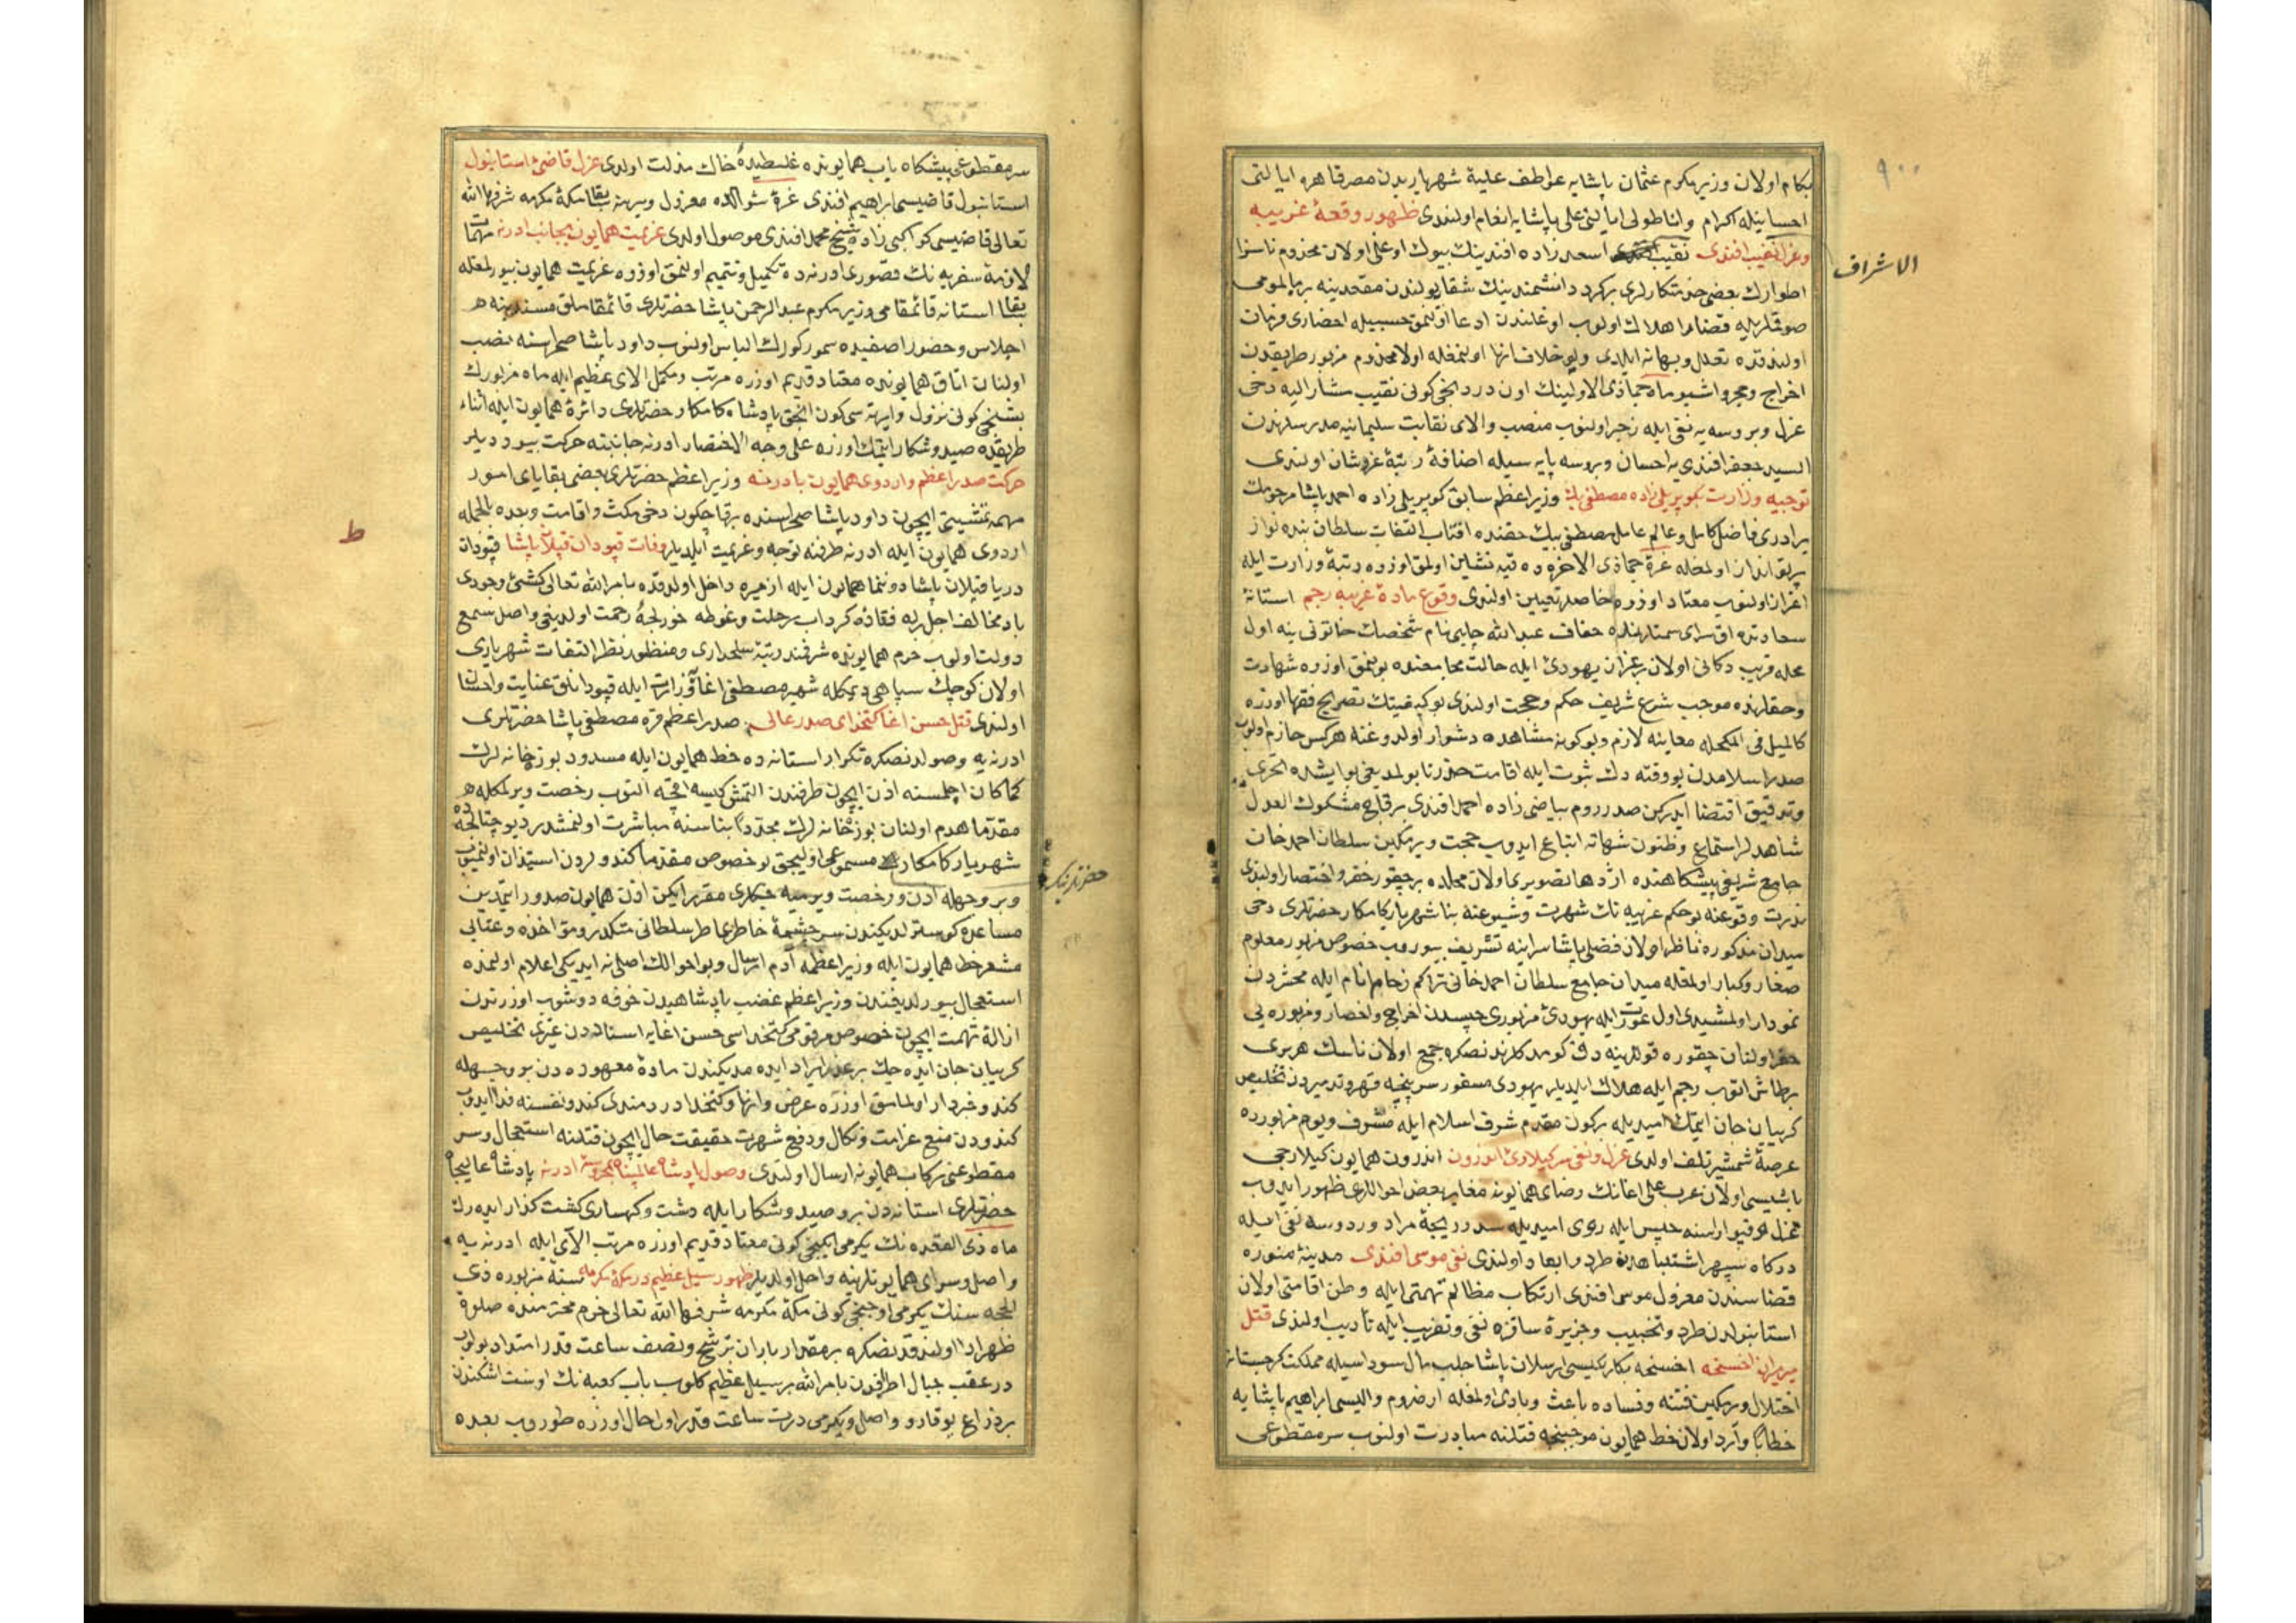 ٩٠٠
بكام اولان وزير مكرم عثمان پاشايه عواطف عليۀ شهرياريدن مصر قاهره ايالتى
احسانيله اكرام و اناطولى ايالتى على پاشايه انعام اولندى ظهور وقعۀ غريبه
وعزل نقيب افندى نقيب اسعد زاده افندينك بيوك اوغلى اولان مخدوم ناسزا
الاشراف
اطوارك بعضى خدمتكارلرى بركرد دانشمندينك شقايولندن مقعدينه
صوقملريله قضارا هلاك اولوب اوغلندن ادعا اولنمق حسبيله احضارى فرمان
اولندقده تعلل وبهانه ايلدى ولو خلاف انها اولنمغله اولا مخدوم مزبور طريقدن
اخراج ومحو واشبو ماه جماذى الاولينك اون دردنجى كونى نقيب مشار اليه دخى
عزل وبروسه يه نفى ايله زجر اولنوب منصب والاى نقابت سليمانيه مدرسلرندن
السيد جعفر افندى يه احسان وبروسه پايه سيله اضافۀ رتبۀ عز وشان اولندى
توجيه وزارت بكوپريلى زاده مصطفى بك وزير اعظم سابق كوپريلى زاده احمد پاشا مرحومك
برادرى فاضل كامل وعالم عامل مصطفى بيك حقنده افتاب التفات سلطان بنده نواز
پرتو انداز اولمغله غرۀ جماذى الاخره ده قبه نشاين اولمق اوزره رتبۀ وزارت ايله
اعزاز اولنوب معتاد اوزره خاصلر تعيين اولندى وقوع مادۀ غريبه رجم استانۀ
سعادتده اق سراى سمتلرنده خفاف عبدالله چلبى نام شخصك خاتونى ينه اول
محله قريب دكانى اولان بر عزان يهودى ايله حالت مجامعتده بولنمق اوزره شهادت
وحقلرنده موجب شرع شريف حكم وحجت اولندى بو كيفيتك تصريح فقها اوزره
كالميل فى المكحله معاينه لازم وبو كونه مشاهده دشوار اولدوغنه هركس جازم اولوب
صدر اسلامدن بو وقته دك ثبوت ايله اقامت حد زنا بولمديغى بو ايشده تحرى
وتدقيق اقتضا ايدركن صدر روم بياضى زاده احمد افندى بر قاج مشكوك العدل
شاهدلر استماع وظنون شهاته اتباع ايدوب حجت ويرمكين سلطان احمد خان
جامع شريفى پيشكاهنده اژدها تصويرى اولان محلده بر چقور حفر واختصار اولندى
ندرت وقوعنه بو حكم غريبه نك شهرت وشيوعنه بنا شهريار كامكار حضرتلرى دخى
ميدان مذكوره ناظر اولان فضلى پاشا سراينه تشريف بيوروب خصوص مزبور معلوم
صغار وكبار اولمغله ميدان جامع سلطان احمد خانى تراكم زحام انام ايله محشردن
نمودار اولمشيدى اول عورت ايله يهودى مزبورى حبسدن اخراج واحضار ومزبوره يى
حفر اولنان چقوره قوللرينه دك كومدكلرندنصكره جمع اولان ناسك هر برى
بر طاش اتوب رجم ايله هلاك ايلديلر يهودى مسفور سرپنجۀ قهر وتدميردن تخليص
كريبان جان ايتمك اميديله بركون مقدم شرف اسلام ايله مشرف ويوم مزبورده
عرضۀ شمشير تلف اولدى عزل ونفى سركيلارئ اندرون اندرون همايون كيلارجى
باشيسى اولان عرب على اغانك رضاى همايونه مغاير بعض احواللرى ظهور ايدوب
عزل قپو اراسنه حبس ايله رودوسه نفى ايله
دركاه سپهر اشتباهدن طرد وابعاد اولندى نفى موسى افندى مدينۀ منوره
قضاسندن معزول موسى افندى ارتكاب مظالم تهمتى ايله وطن اقامتى اولان
استانبولدن طرد وتخييب وجزيرۀ ساقزه نفى وتغريب ايله تأديب اولندى قتل
ميرميران اخسخه اخسخه بكلربكيسى ارسلان پاشا جلب مال سوداسيله مملكت كرجستانه
اختلال ويرمكين فتنه وفساده باعث وبادى اولمغله ارضروم واليسى ابراهيم پاشايه
خطابا وارد اولان خط همايون موجبنجه قتلنه مبادرت اولنوب سر مقطوعى
سر مقطوعى پيشكاه باب همايونده غلطيدۀ خاك مذلت اولدى عزل قاضئ استانبول
استانبول قاضيسى ابراهيم افندى غرۀ شوالده معزول ويرينه سابقا مكۀ مكرمه شرفها الله
تعالى قاضيسى كواكبى زاده شيخ محمد افندى موصول اولدى عزيمت همايون بجانب ادرنه مهمات
لازمۀ سفريه نك قصورى ادرنه ده تكميل وتتميم اولنمق اوزره عزيمت همايون بيورلمغله
سابقا استانه قائمقامى وزير مكرم عبدالرحمن پاشا حضرتلرى قائمقاملق مسندينه
اجلاس وحضور اصفيده سمور كورك الباس اولنوب داود پاشا صحراسنه نصب
اولنان اتاق همايونده معتاد قديم اوزره مرتب ومكمل الاى عظيم ايله ماه مزبورك
بشنجى كونى نزول وايرته سى كون انجق پادشاه كامكار حضرتلرى دائرۀ همايون ايله اثناء
طريقده صيد وشكار ايتمك اوزره على وجه الاختصار ادرنه جانبنه حركت بيورديلر
حركت صدر اعظم واردوى همايون بادرنه وزير اعظم حضرتلرى بعضى بقاياى امور
مهمه تمشيتى ايچون داود پاشا صحراسنده برقاچ كون دخى مكث واقامت وبعده بالجمله
ط
اردوى همايون ايله ادرنه طرفنه توجه وعزيمت ايلديلر وفات قپودان قپلان پاشا قپودان
دريا قپلان پاشا دوننما همايون ايله ازميره داخل اولدقده بامر الله تعالى كشتئ وجودى
باد مخالف اجل ايله فتاده كرداب رحلت وغوطه خور لجۀ رحمت اولديغى واصل سمع
دولت اولوب حرم همايونده شرفند رتبۀ سلحدارى ومنظور نظر التفات شهريارى
اولان كوچك سپاهى ديمكله شهير مصطفى اغا وزارت ايله قپودانلق عنايت واحسان
اولندى قتل حسن اغا كتخداى صدر عالى صدر اعظم قره مصطفى پاشا حضرتلرى
ادرنه يه وصولدنصكره تكرار استانه ده خط همايون ايله مسدود بوزخانه لرك
كما كان اچلمسنه اذن ايچون طرفندن التمش كيسه اقچه النوب رخصت ويرلمكله
مقدما هدم اولنان بوزخانه لرك مجددا بناسنه مباشرت اولنمشدر ديو
شهريار كامكار مسموعى اوليجق بو خصوص مقدما كندولردن استيذان اولنميوب
حضرتلرينك
وبر وجهله اذن ورخصت ويرميه جكلرى مقرر ايكن اذن همايون صدور ايتمدين
مساعده كوسترلديكندن سرچشمۀ خاطر عاطر سلطانى متكدر ومؤاخذه وعتابى
مشعر خط همايون ايله وزير اعظمه آدم ارسال وبو احوالك اصلى نه ايدىكى اعلام اولنمده
استعجال بيورلديغندن وزير اعظم غضب پادشاهيدن خوفه دوشوب اوزرندن
ازالۀ تهمت ايچون خصوص مرقومى كتخداسى حسن اغايه اسناددن غيرى تخليص
كريبان جان ايده جك بر عذر ايراد ايده مديكندن مادۀ معهوده دن بو وجهله
كندو خبردار اولمامق اوزره عرض وانها وكتخدا دردمندى كندو نفسنه فدا ايدوب
كندودن منع غرامت ونكال ودفع شهرت حقيقت حال ايچون قتلنه استعجال وسر
مقطوعنى ركاب همايونه ارسال اولندى وصول پادشاه عالمپناه بمحروسۀ ادرنه پادشاه عاليجاه
حضرتلرى استانه دن بر وصيد وشكار ايله دشت وكهسارى كشت كذار ايدەرك
ماه ذى القعده نك يكرمى ايكنجى كونى معتاد قديم اوزره مرتب الآى ايله ادرنه يه
واصل وسراى همايونلرينه داخل اولديلر ظهور سيل عظيم در مكۀ مكرمه سنه مزبوره ذى
الحجه سنك يكرمى اوچنجى كونى مكۀ مكرمه شرفها الله تعالى حرم محترمنده صلوة
ظهر ادا اولندقدنصكره بر مقدار باران ترشح ونصف ساعت قدر امتداد بولوب
در عقب جبال اطرافدن بامر الله بر سيل عظيم كلوب باب كعبه نك اوست اشكندن
بر ذراع يوقارو واصل ويكرمى درت ساعت قدر اول حال اوزره طوروب بعده